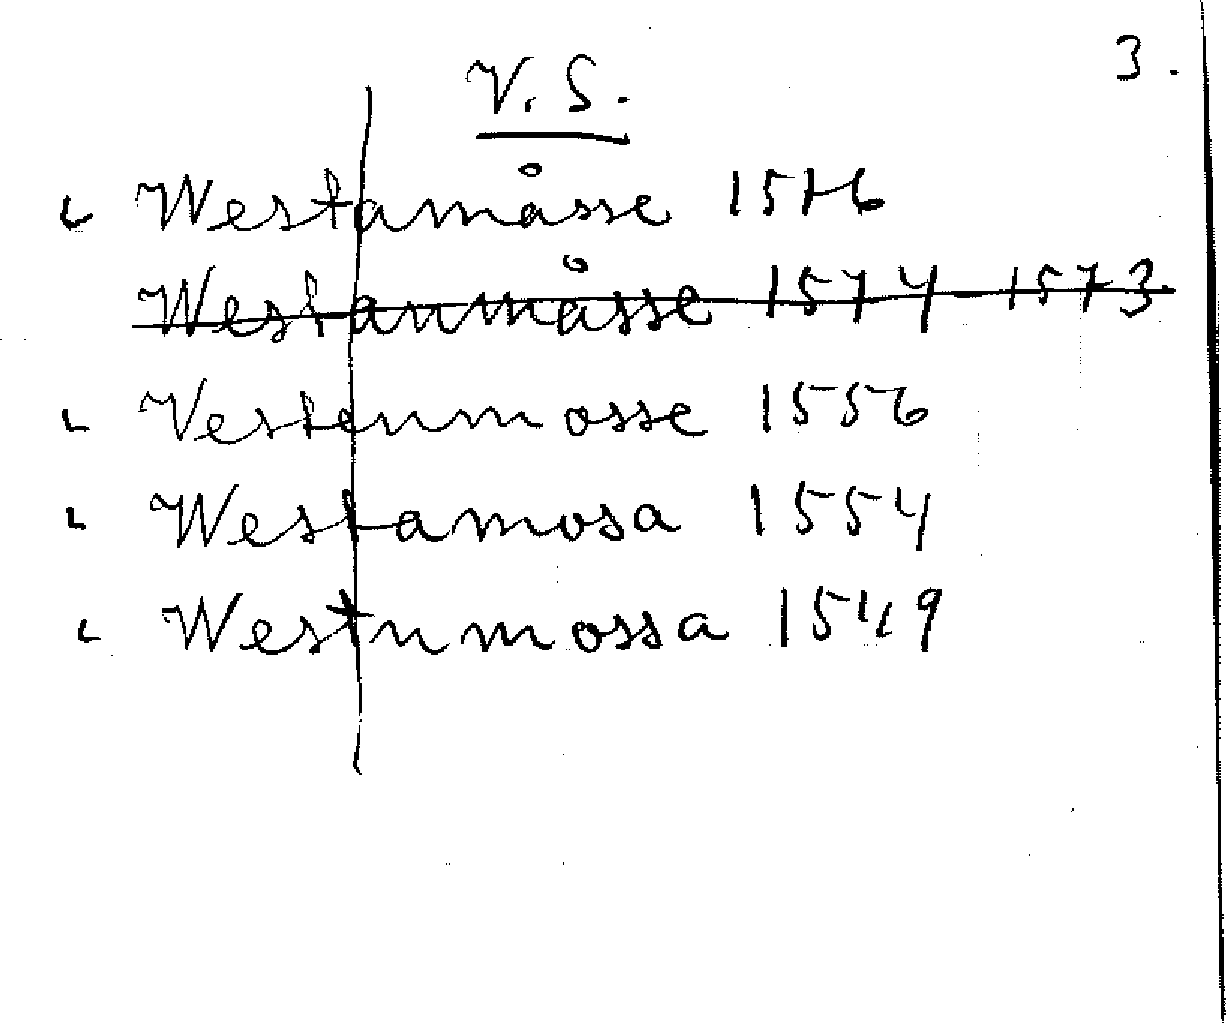 3.
V. S.
Westamåsse 1576
Westanmåsse 1574 1573.
Vestenmosse 1556
Westamosa 1554
Westnmossa 1549